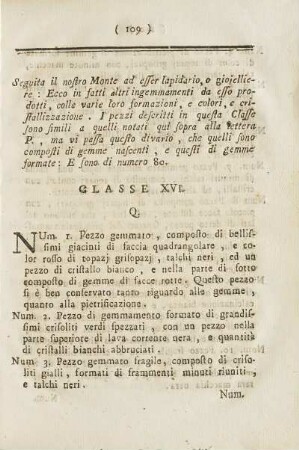 ( 109 )
Seguita il nostro Monte ad esser lapidario, o giojellie-
re : Ecco in fatti altri ingemmamenti da esso pro-
dotti, colle varie loro formazioni, e colori, e cri-
stallizzazione. I pezzi descritti in questa Classe
sono simili a quelli notati quì sopra alla lettera
P., ma vi passa questo divario, che quelli son
composti di gemme nascenti, e questi di gemme
formate : E sono di numero 80.
CLASSE XVI.
Q.
NUm. 1. Pezzo gemmato, composto di bellis-
simi giacinti di faccia quadrangolare, e co-
lor rosso di topazj grisopazj, talchi neri, ed un
pezzo di cristallo bianco, e nella parte di sotto
composto di gemme di facce rotte. Questo pezzo
si è ben conservato tanto riguardo alle gemme,
quanto alla pietrificazione.
Num. 2. Pezzo di gemmamento formato di grandis-
simi crisoliti verdi spezzati, con un pezzo nella
parte superiore di lava corrente nera, e quantità
di cristalli bianchi abbruciati.
Num. 3. Pezzo gemmato fragile, composto di criso-
liti gialli, formati di frammenti minuti riuniti,
e talchi neri.
Num.